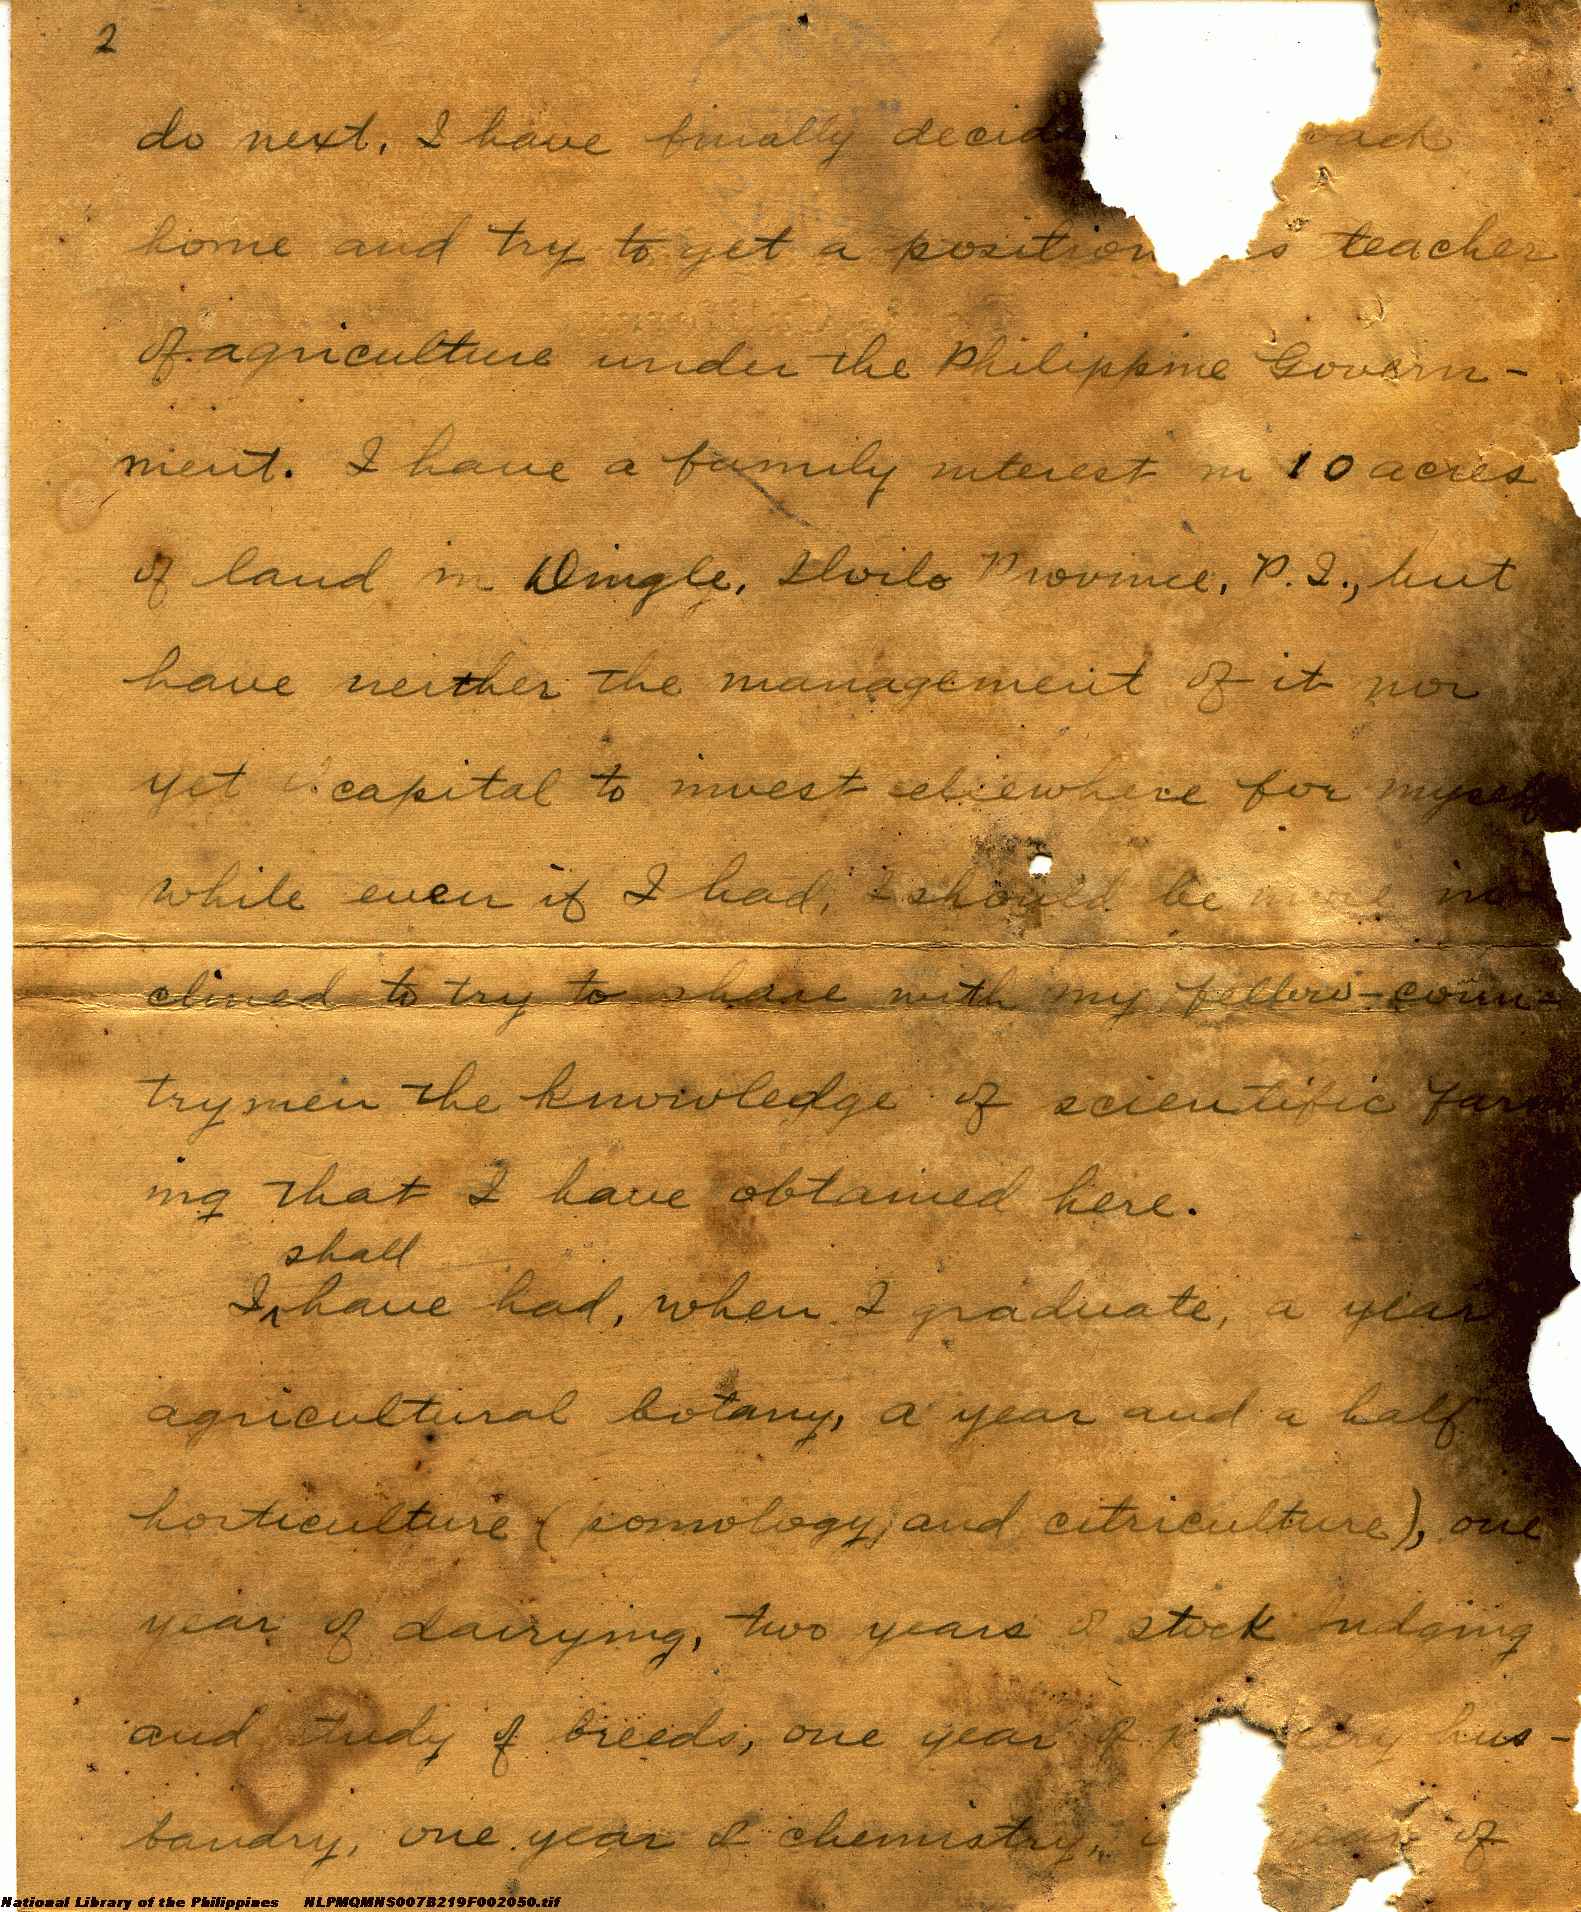 2
do next. I have finally decid back
home and try to get a position as teacher
of agriculture under the Philippine Govern-
ment. I have a family interest in 10 acres
of land in Dingle, Iloilo Province, P.I., but
have neither the management of it nor
yet capital to invest elsewhere for myself
while even if I had, I should be more in-
clined to try to share with my fellow-coun-
trymen the knowledge of scientific farm
ing that I have obtained here.
shall
I ^ have had, when I graduate, a year
agricultural botany, a year and a half
horticulture (pomology, and citriculture), one
year of dairying, two years of stock judging
and study of breeds, one year of hus-
bandry, one year of chemistry, year of
National Library of the Philippines NLPMQMNS007B219F002050.tif